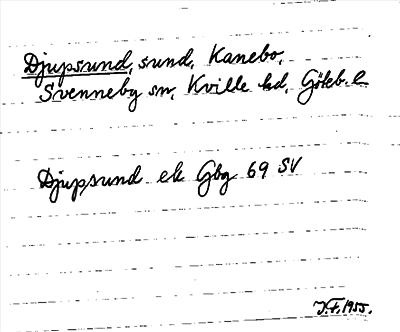 Djupsund, sund, Kanebo,
Svenneby sn, Kville hd, Göteb. l.
Djupsund ek Gbg 69 SV
J.F. 1955.